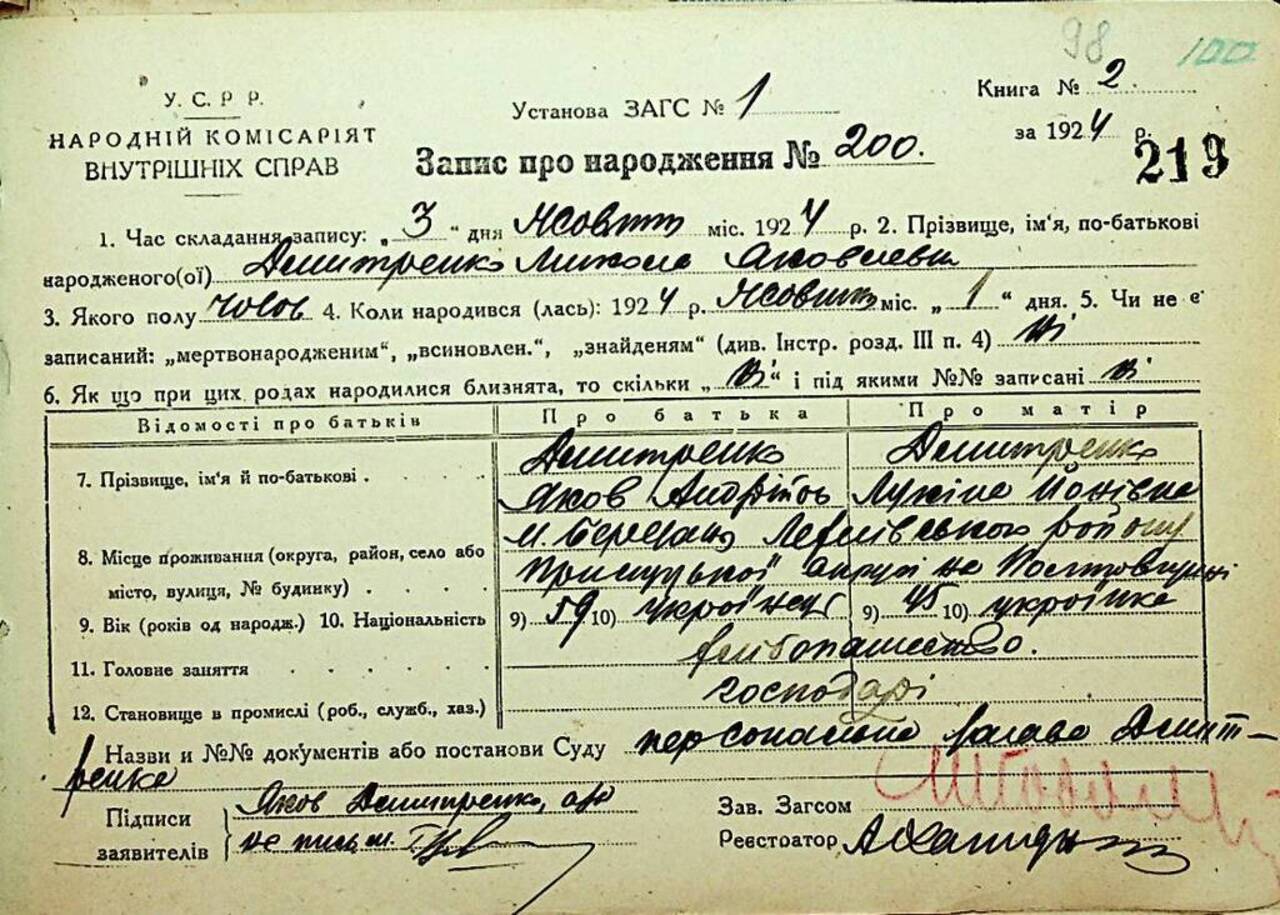 98 100
У. С. Р Р.
НАРОДНІЙ КОМІСАРІЯТ
ВНУТРІШНІХ СПРАВ
Установа ЗАГС № 1
Книга № 2
за 1924 р.
Запис про народження № 200.
219
1. Час складання запису: „ 3 “ дня Жовтня міс. 1924 р. 2. Прізвище, ім‘я, по-батькові
народженого(ої) Дмитренко Микола Яковлевич
3. Якого полу чолов 4. Коли народився (лась): 1924 р. Жовтня міс. „ 1 “ дня. 5. Чи не є
записаний: „мертвонародженим“, „всиновлен.“, „знайденям“ (див. Інстр. розд. III п. 4) Ні
6. Як що при цих родах народилися близнята, то скільки „ ні “ і під якими №№ записані ні
Відомості про батьків Про батька Про матір
7. Прізвище, ім‘я й по-батькові Дмитренко Дмитренко
Яков Андрійов
8. Місце проживання (округа, район, село або
місто, вулиця, № будинку)
м. Березань району
Прилуцької округи на Полтавщині
9. Вік (років од народж.) 10. Національність 9) 59 10) українець 9) 45 10) українка
11. Головне заняття хлібопашество.
12. Становище в промислі (роб., служб., хаз.) господарі
Назви и №№ документів або постанови Суду персональна заява Дмит-
ренка
Підписи
заявителів
Яков Дмитренко, а
не письм.
Зав. Загсом
Реєстоатор